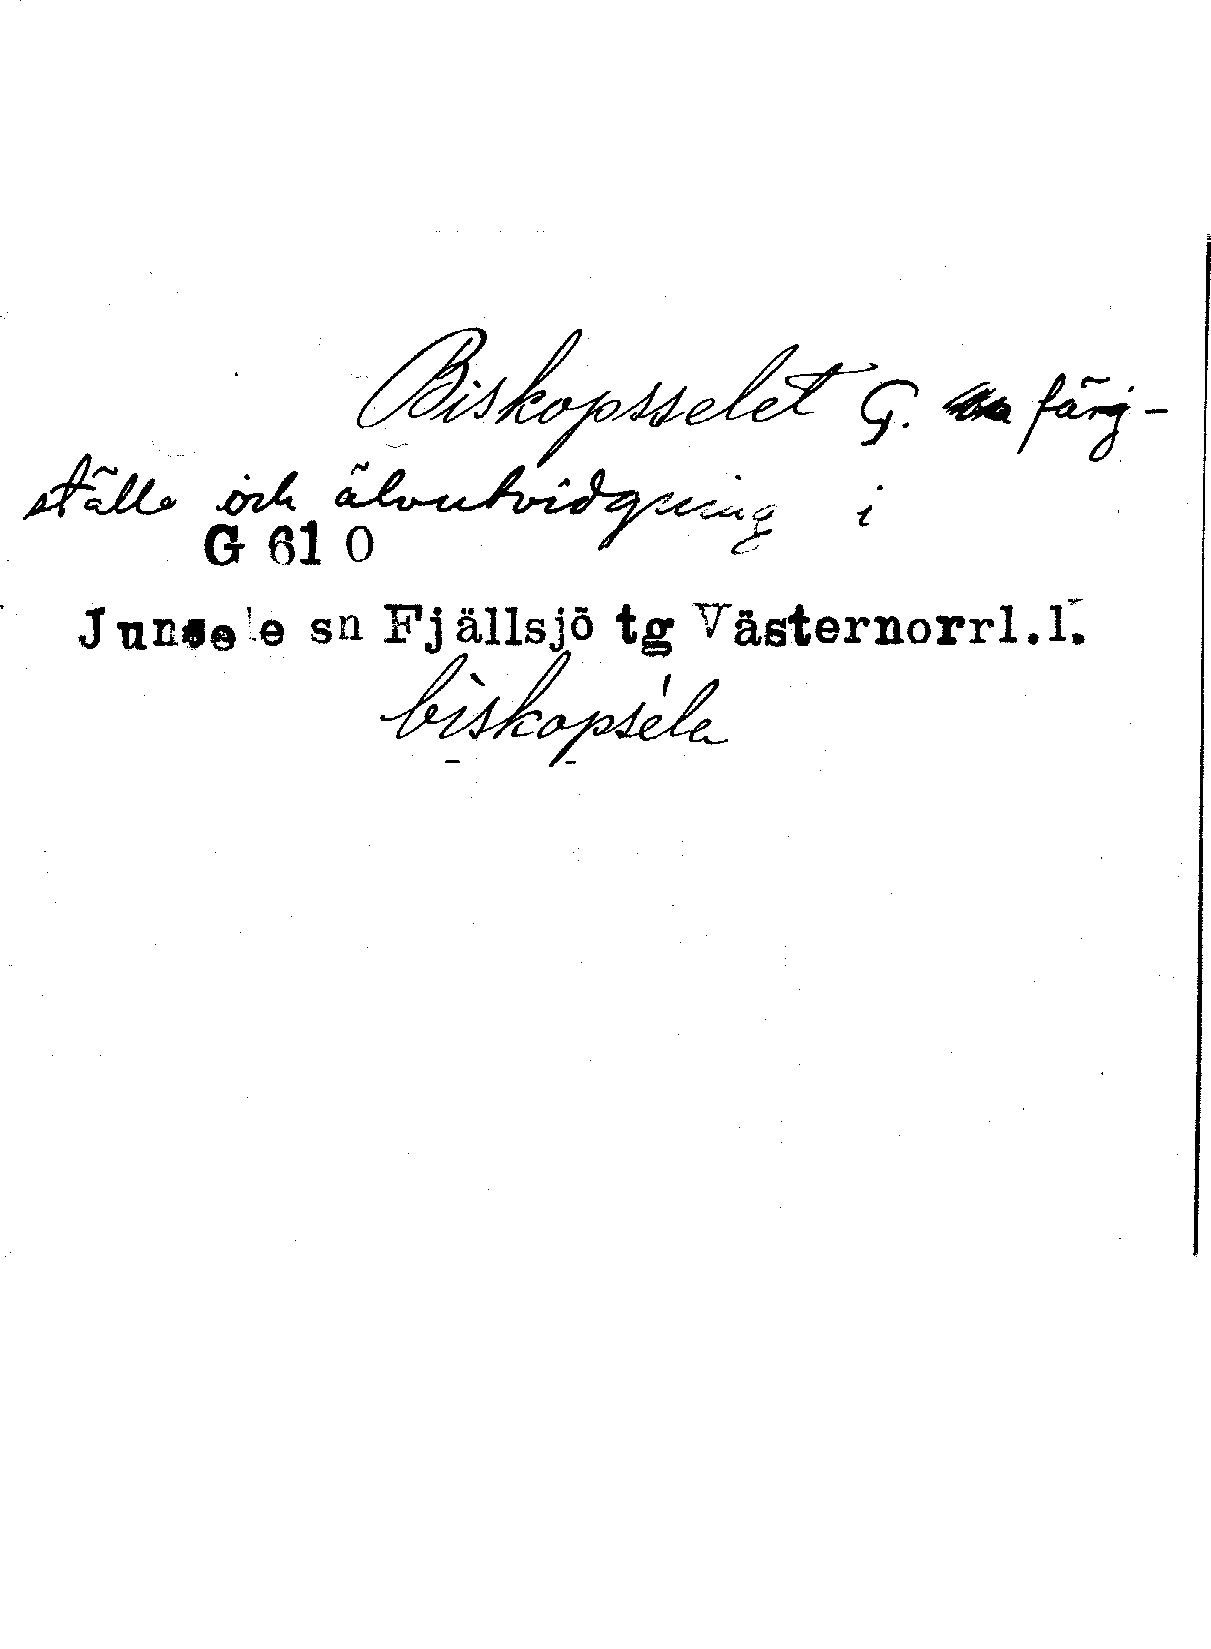 Biskopsselet G. färj-
ställe och älvutvidgning i
G 61 0
Junsele sn Fjällsjö tg Västernorrl.l.
bìskopséla